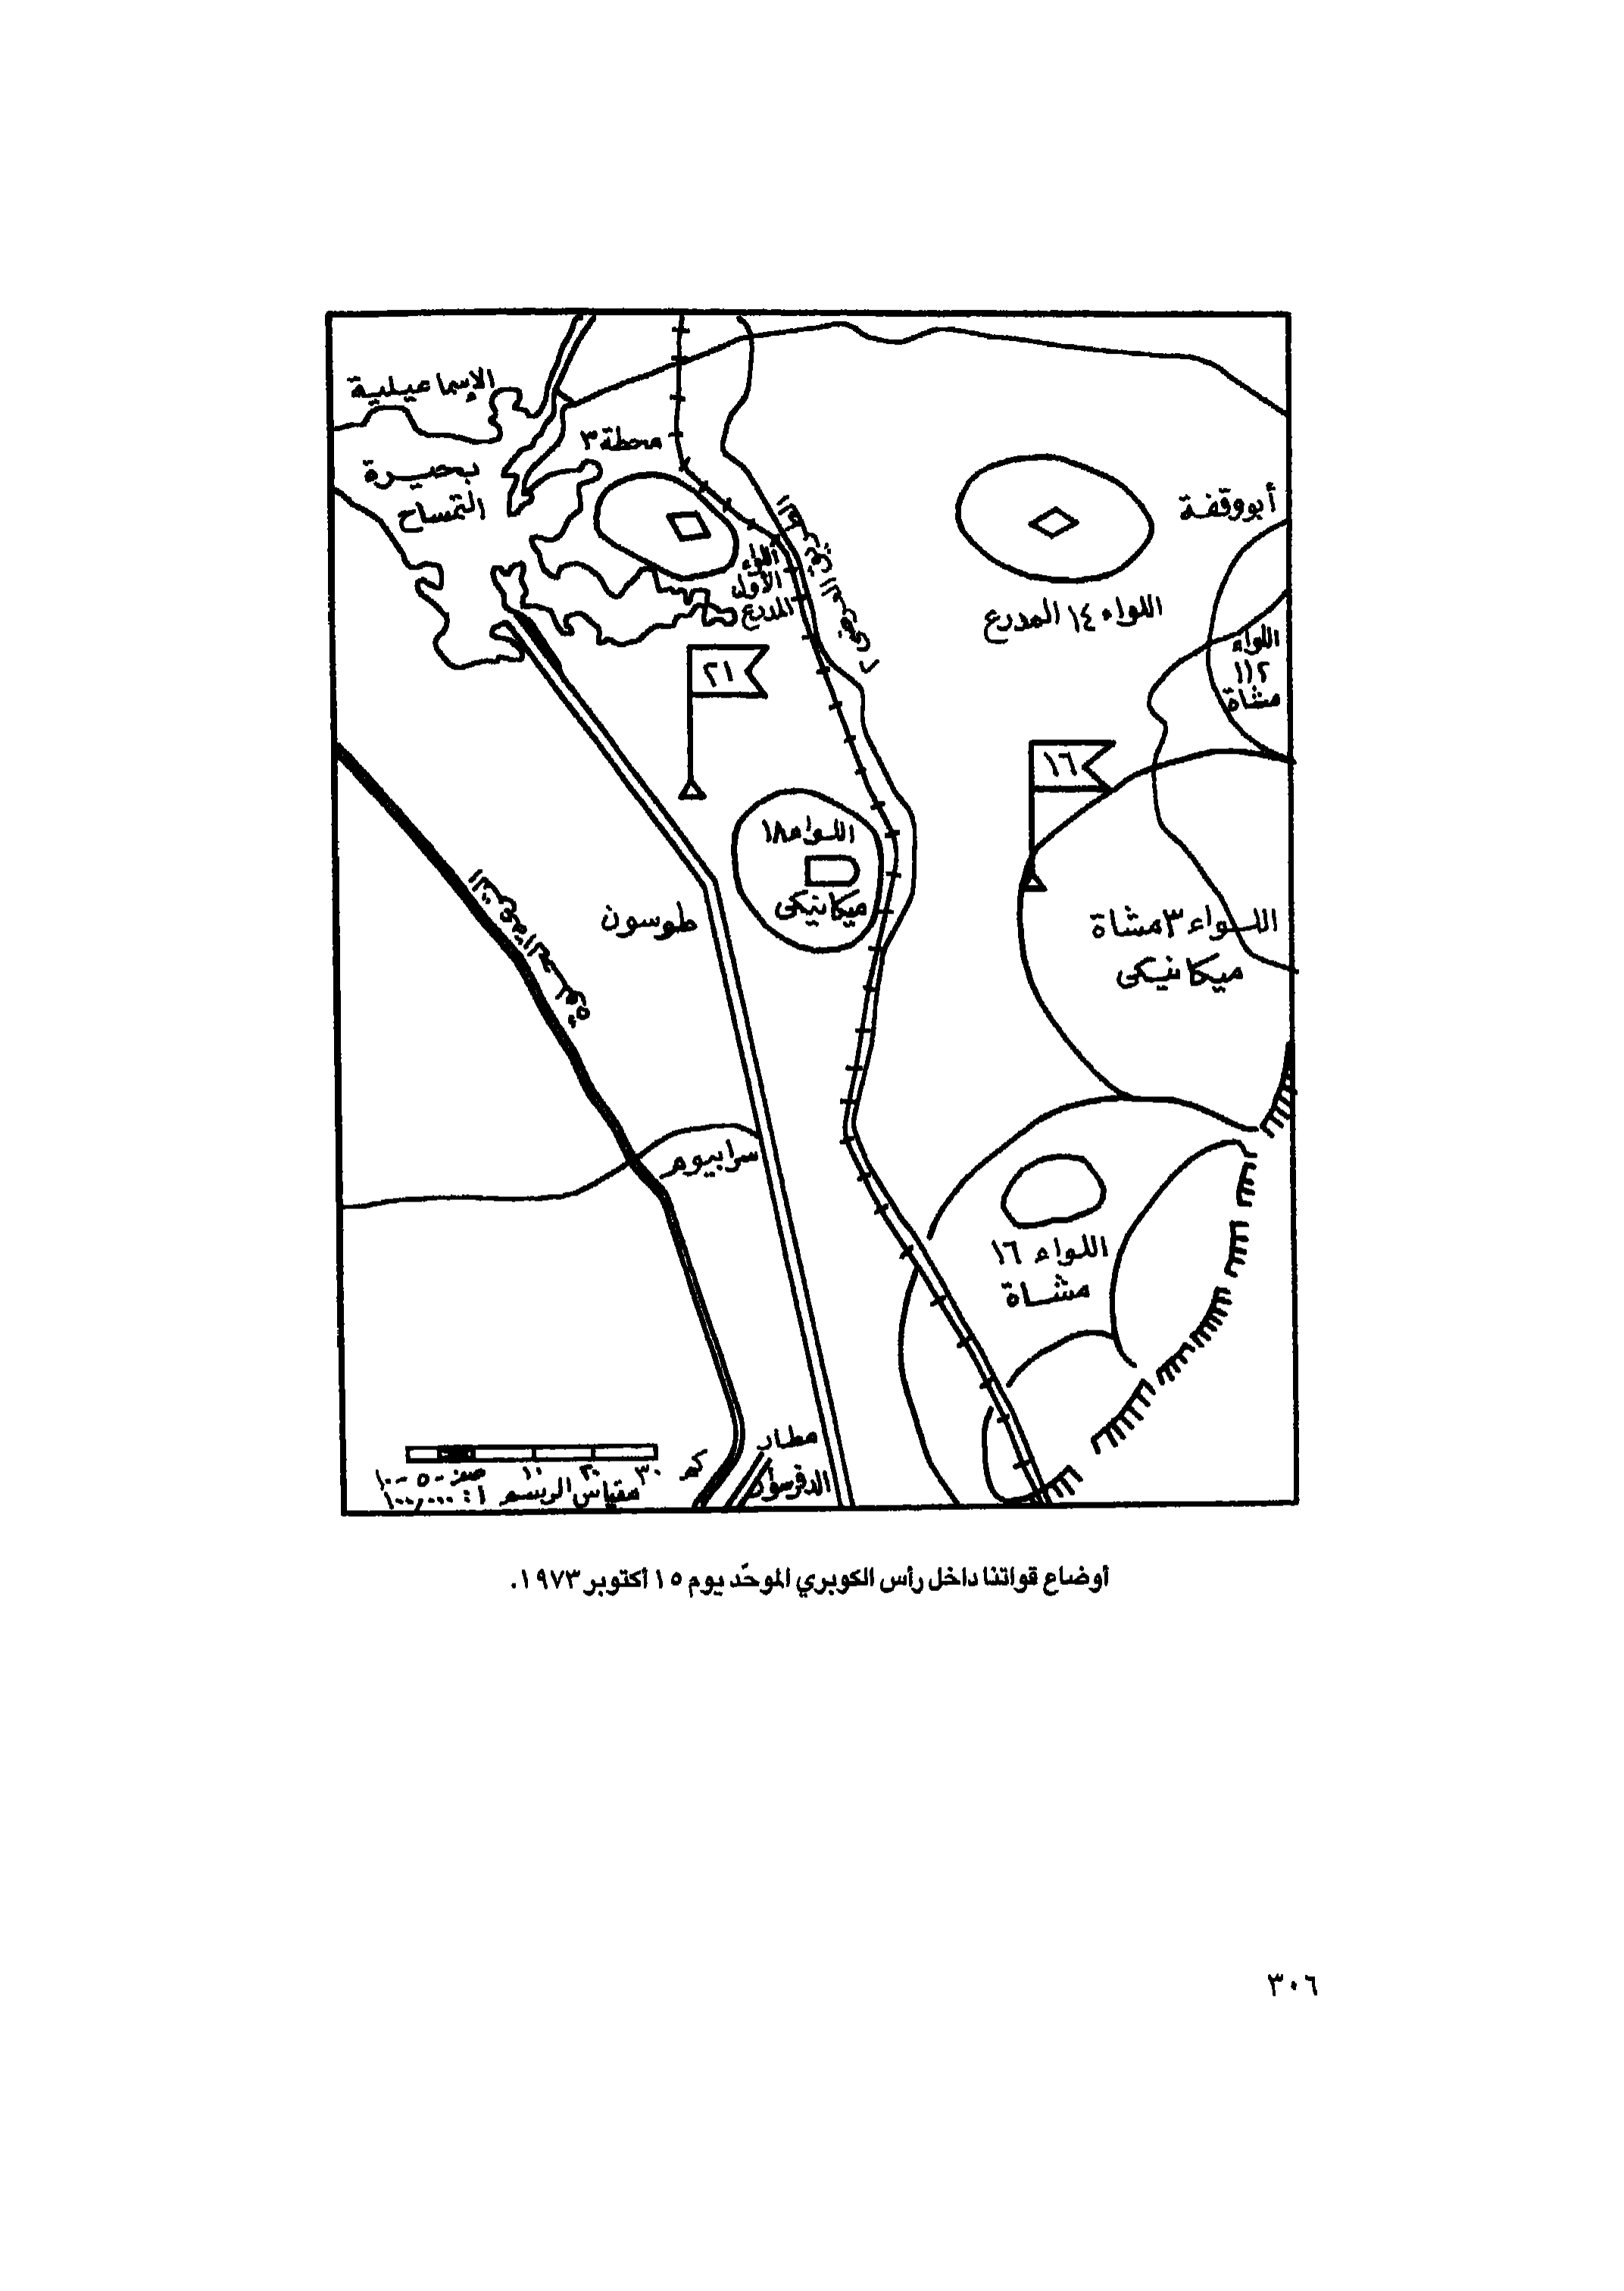 الإسماعيلية
محطة ٣
بحيرة
التمساح
أبووقفة
اللواء
الأول
المدرع
اللواء ١٤ المدرع
اللواء
١١٢
مشاة
٢١
١٦
اللواء ١٨
ميكانيكى
طوسون
اللواء ٣ مشاة
ميكانيكى
سرابيوم
اللواء ١٦
مشاة
مطار
الدفرسوار
١٠ - ٥ - صفر ١٠ ٢٠ ٣٠ كم
مقياس الرسم ١ : ١٠٠,٠٠٠
أوضاع قواتنا داخل رأس الكوبري الموحّد يوم ١٥ أكتوبر ١٩٧٣.
٣٠٦